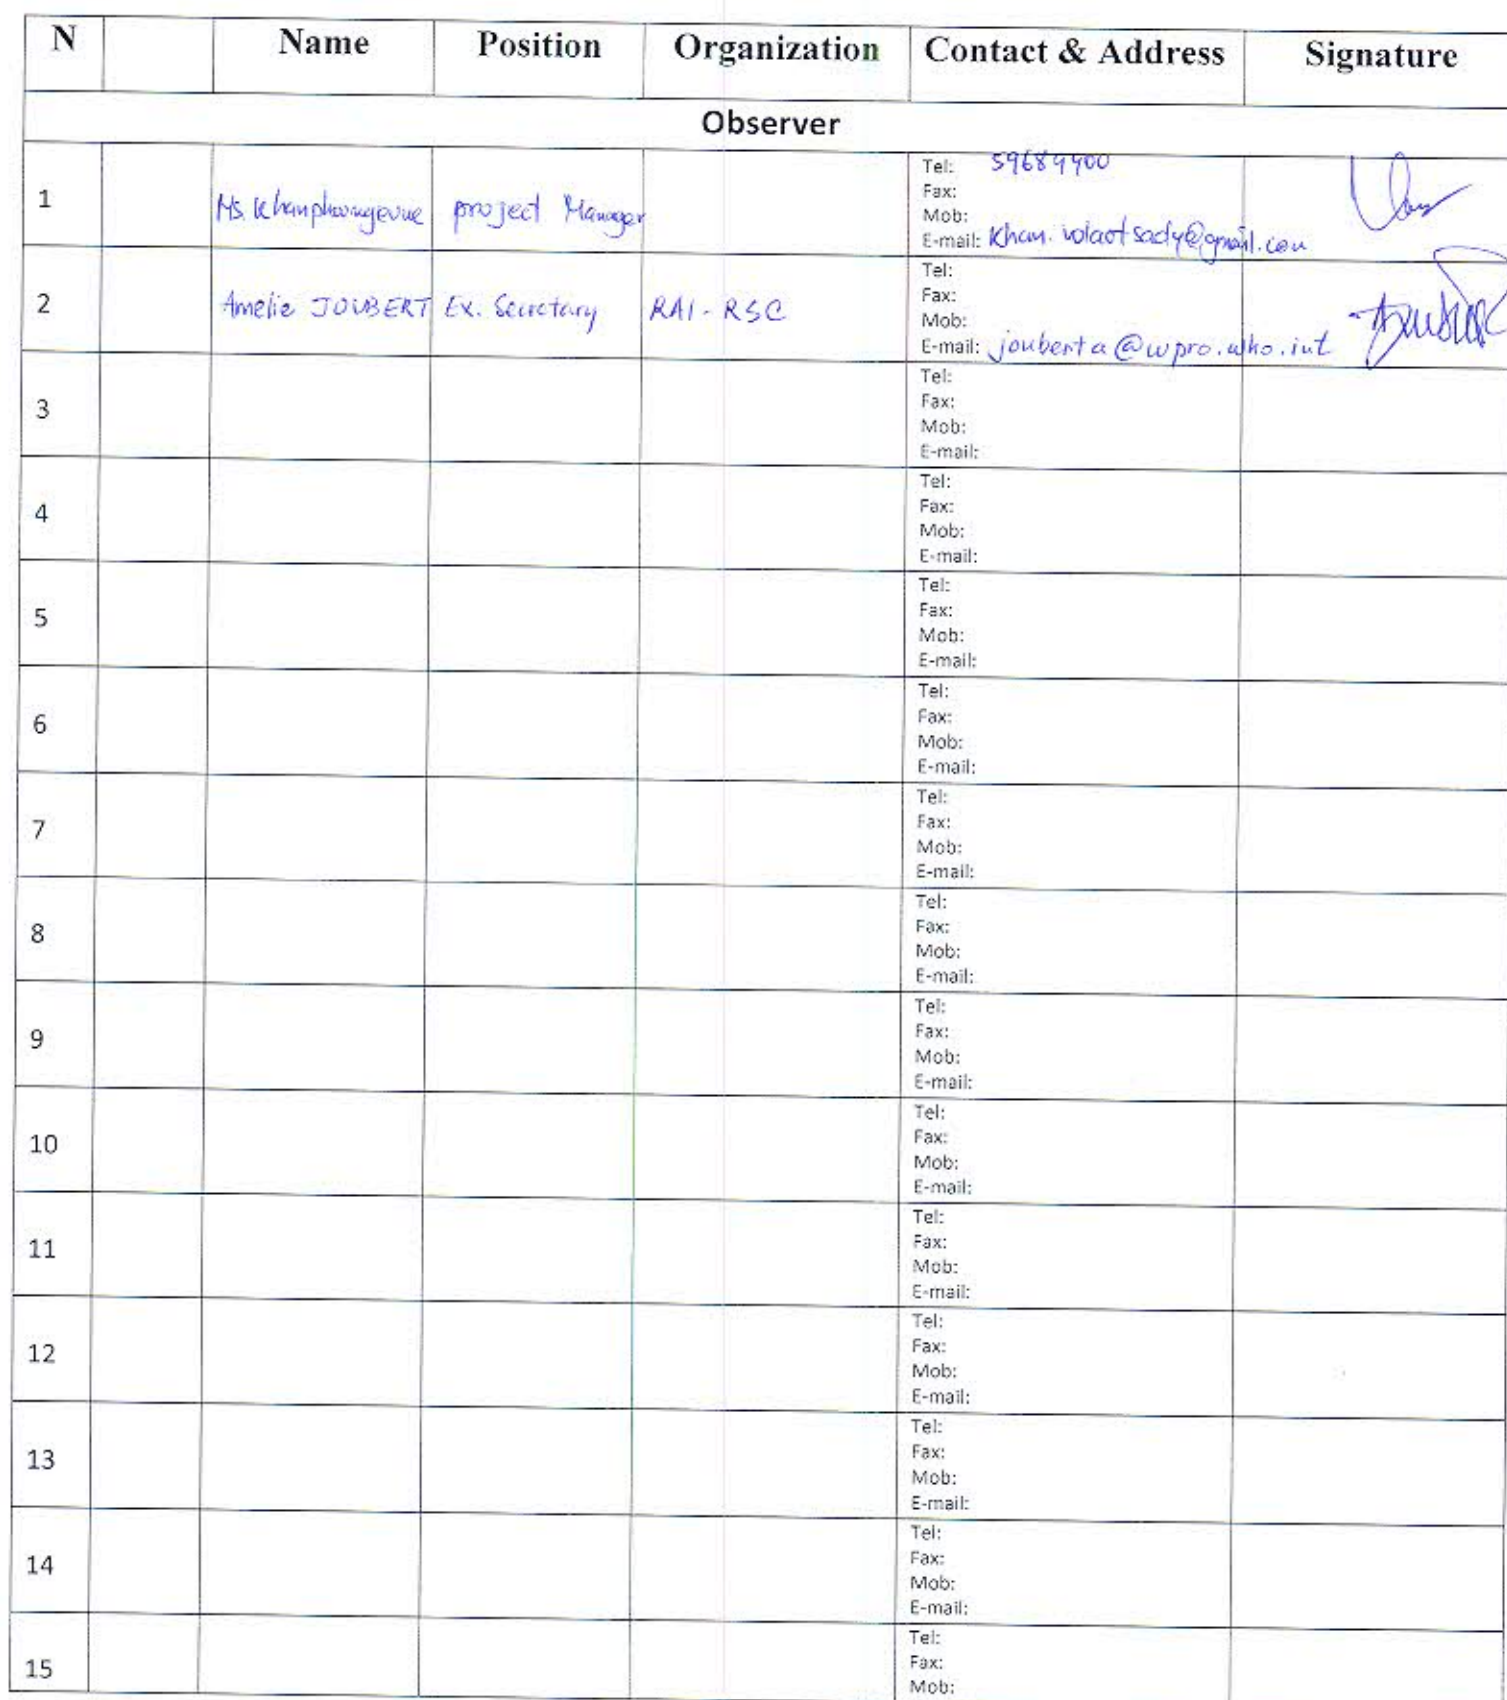 N Name Position Organization Contact & Address Signature
Observer
1 Ms. Khamphoungeune project Manager
Tel: 59689900
Fax:
Mob:
E-mail:
2 Amelie JOUBERT Ex. Secretary RAI-RSC
Tel:
Fax:
Mob:
E-mail: jouberta@wpro.who.int
3
Tel:
Fax:
Mob:
E-mail:
4
Tel:
Fax:
Mob:
E-mail:
5
Tel:
Fax:
Mob:
E-mail:
6
Tel:
Fax:
Mob:
E-mail:
7
Tel:
Fax:
Mob:
E-mail:
8
Tel:
Fax:
Mob:
E-mail:
9
Tel:
Fax:
Mob:
E-mail:
10
Tel:
Fax:
Mob:
E-mail:
11
Tel:
Fax:
Mob:
E-mail:
12
Tel:
Fax:
Mob:
E-mail:
13
Tel:
Fax:
Mob:
E-mail:
14
Tel:
Fax:
Mob:
E-mail:
15
Tel:
Fax:
Mob: